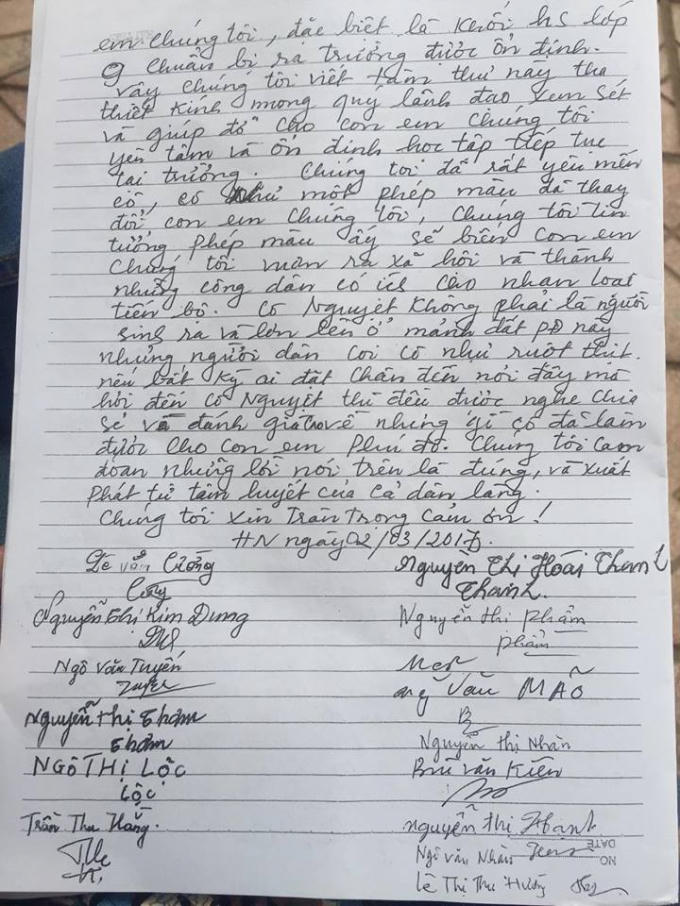 em chúng tôi, đặc biệt là khối hs lớp
9 chuẩn bị ra trường được ổn định.
Vậy chúng tôi viết tâm thư này tha
thiết kính mong quý lãnh đạo xem sét
và giúp đỡ cho con em chúng tôi
yên tâm và ổn định học tập tiếp tục
tại trường. Chúng tôi đã rất yêu mến
cô, cô như một phép màu đã thay
đổi con em chúng tôi, chúng tôi tin
tưởng phép màu ấy sẽ biến con em
chúng tôi vươn ra xã hội và thành
những công dân có ích cho nhân loại
tiến bộ. Cô Nguyệt không phải là người
sinh ra và lớn lên ở mảnh đất PĐ này
nhưng người dân coi cô như ruột thịt.
nếu bất kỳ ai đặt chân đến nơi đây mà
hỏi đến cô Nguyệt thì đều được nghe chia
sẻ và đánh giá về những gì cô đã làm
được cho con em Phú đô. Chúng tôi cam
đoan những lời nói trên là đúng, và xuất
phát từ tâm huyết của cả dân làng.
Chúng tôi xin Trân Trọng Cảm ơn!
HN ngày 02/03/2017
Lê Văn Cường Nguyễn Thị Hoài Thanh
Thanh
Nguyễn Thị Kim Dung Nguyễn thị phẩm
phẩm
Ngô Văn Tuyến Văn MÃO
Nguyễn Thị Thơm Nguyễn thị Nhàn
Thơm
NGÔ THỊ LỘC Bùi Văn Kiên
LỘC
Trần Thu Hằng. nguyễn thị Hạnh
Ngô văn Nhàn
Lê Thị Thu Hường
NO
DATE